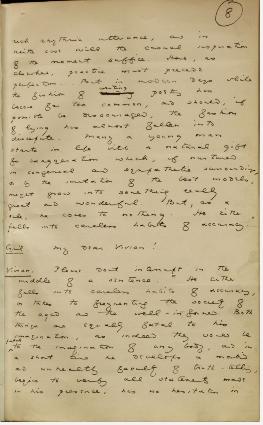 8
rich rhythmic utterance, as in
neither case will the casual inspiration
of the moment suffice. Here, as
elsewhere, practice must precede
perfection. But in modern days while
the fashion of writing poetry has
become far too common, and should, if
possible be discouraged, the fashion
of lying has almost fallen into
disrepute. Many a young man
starts in life with a natural gift
for exaggeration which, if nurtured
in congenial and sympathetic surroundings,
or by the imitation of the best models,
might grow into something really
great and wonderful. But, as a
rule, he comes to nothing. He either
falls into careless habits of accuracy.
Cyril My dear Vivian!
Vivian. Please don't interrupt in the
middle of a sentence. He either
falls into careless habits of accuracy,
or takes to frequenting the society of
the aged and the well-informed. Both
things are equally fatal to his
imagination, as indeed they would be
to the imagination of any body, and in
a short time he develops a morbid
and unhealthy faculty of truth-telling,
begins to verify all statements made
in his presence, has no hesitation in